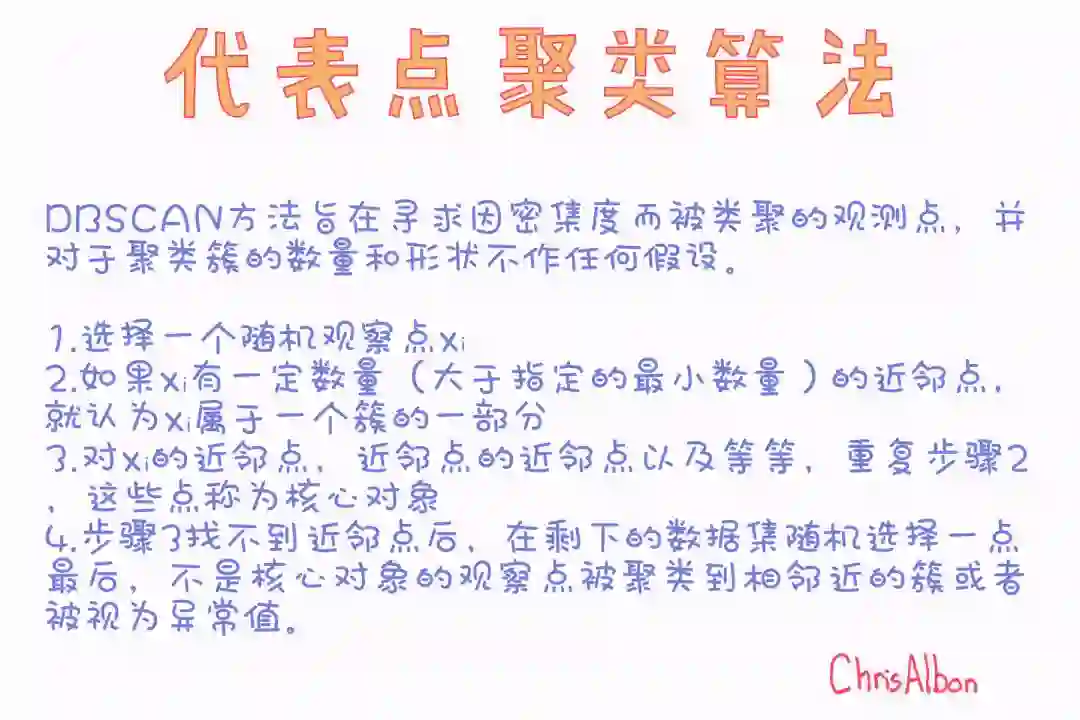 代表点聚类算法
DBSCAN方法旨在寻求因密集度而被类聚的观测点，并
对于聚类簇的数量和形状不作任何假设。
1.选择一个随机观察点xi
2.如果xi有一定数量（大于指定的最小数量）的近邻点，
就认为xi属于一个簇的一部分
3.对xi的近邻点，近邻点的近邻点以及等等，重复步骤2
，这些点称为核心对象
4.步骤3找不到近邻点后，在剩下的数据集随机选择一点
最后，不是核心对象的观察点被聚类到相邻近的簇或者
被视为异常值。
ChrisAlbon